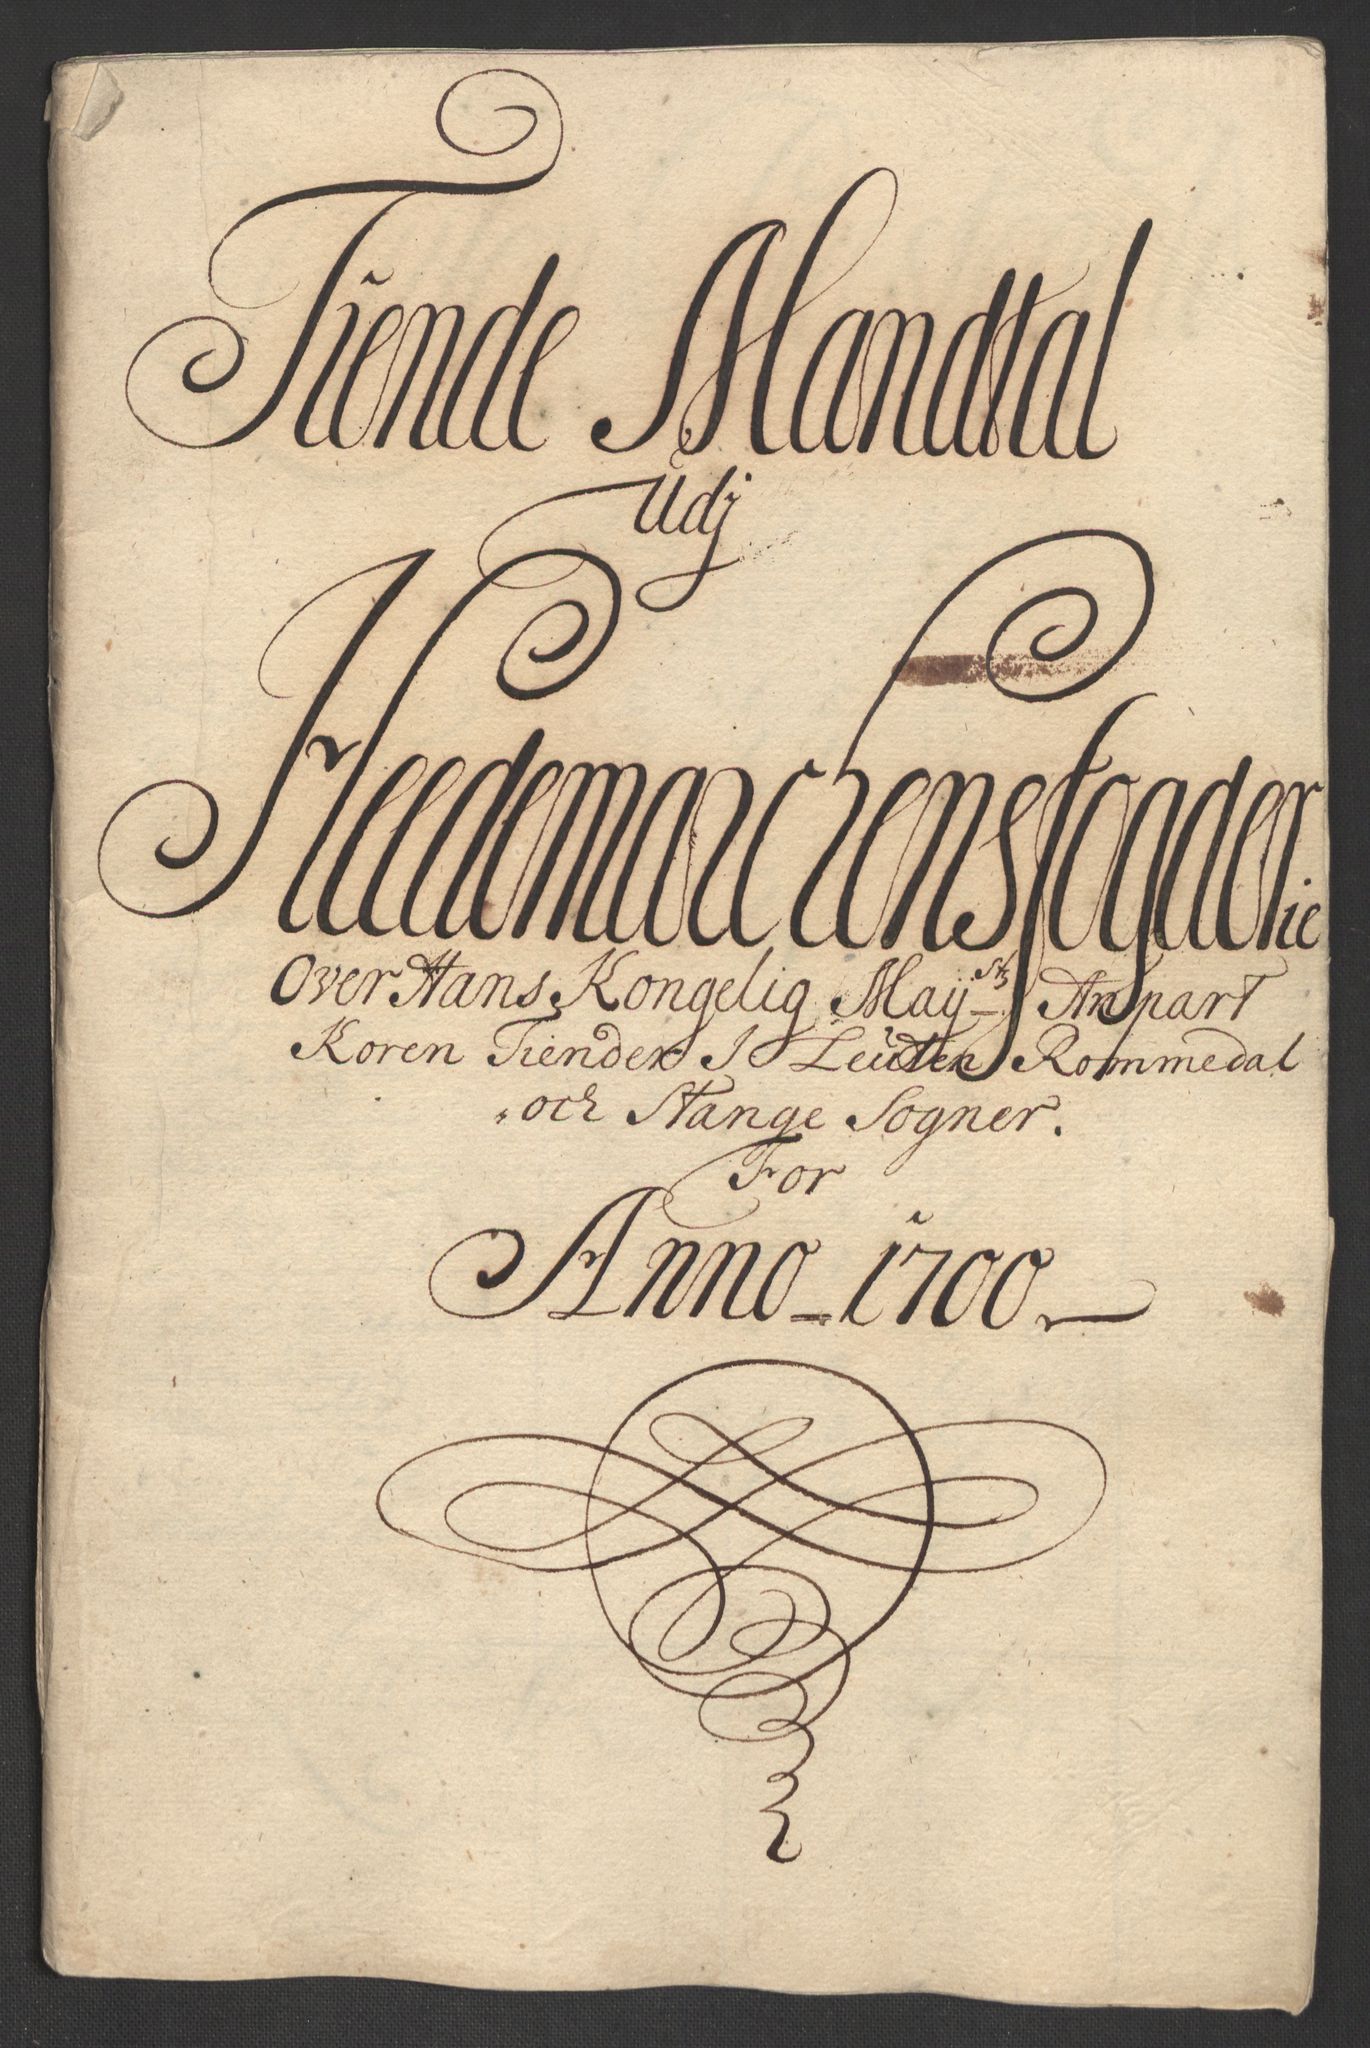 Tiende Mandtal
Udj
Heedemarchens fogderie
Over Hans Kongelig May.sts Anpart
Koren Tiender I Leuten Rommedal
och Stange Sogner.
For
Anno 1700